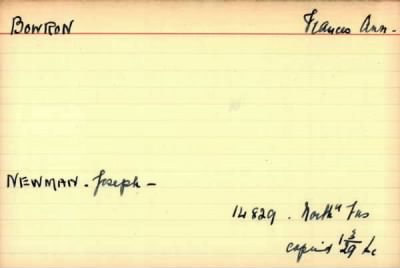 BOWRON Frances Ann -
NEWMAN - Joseph -
14829 . North'n Fus
copied